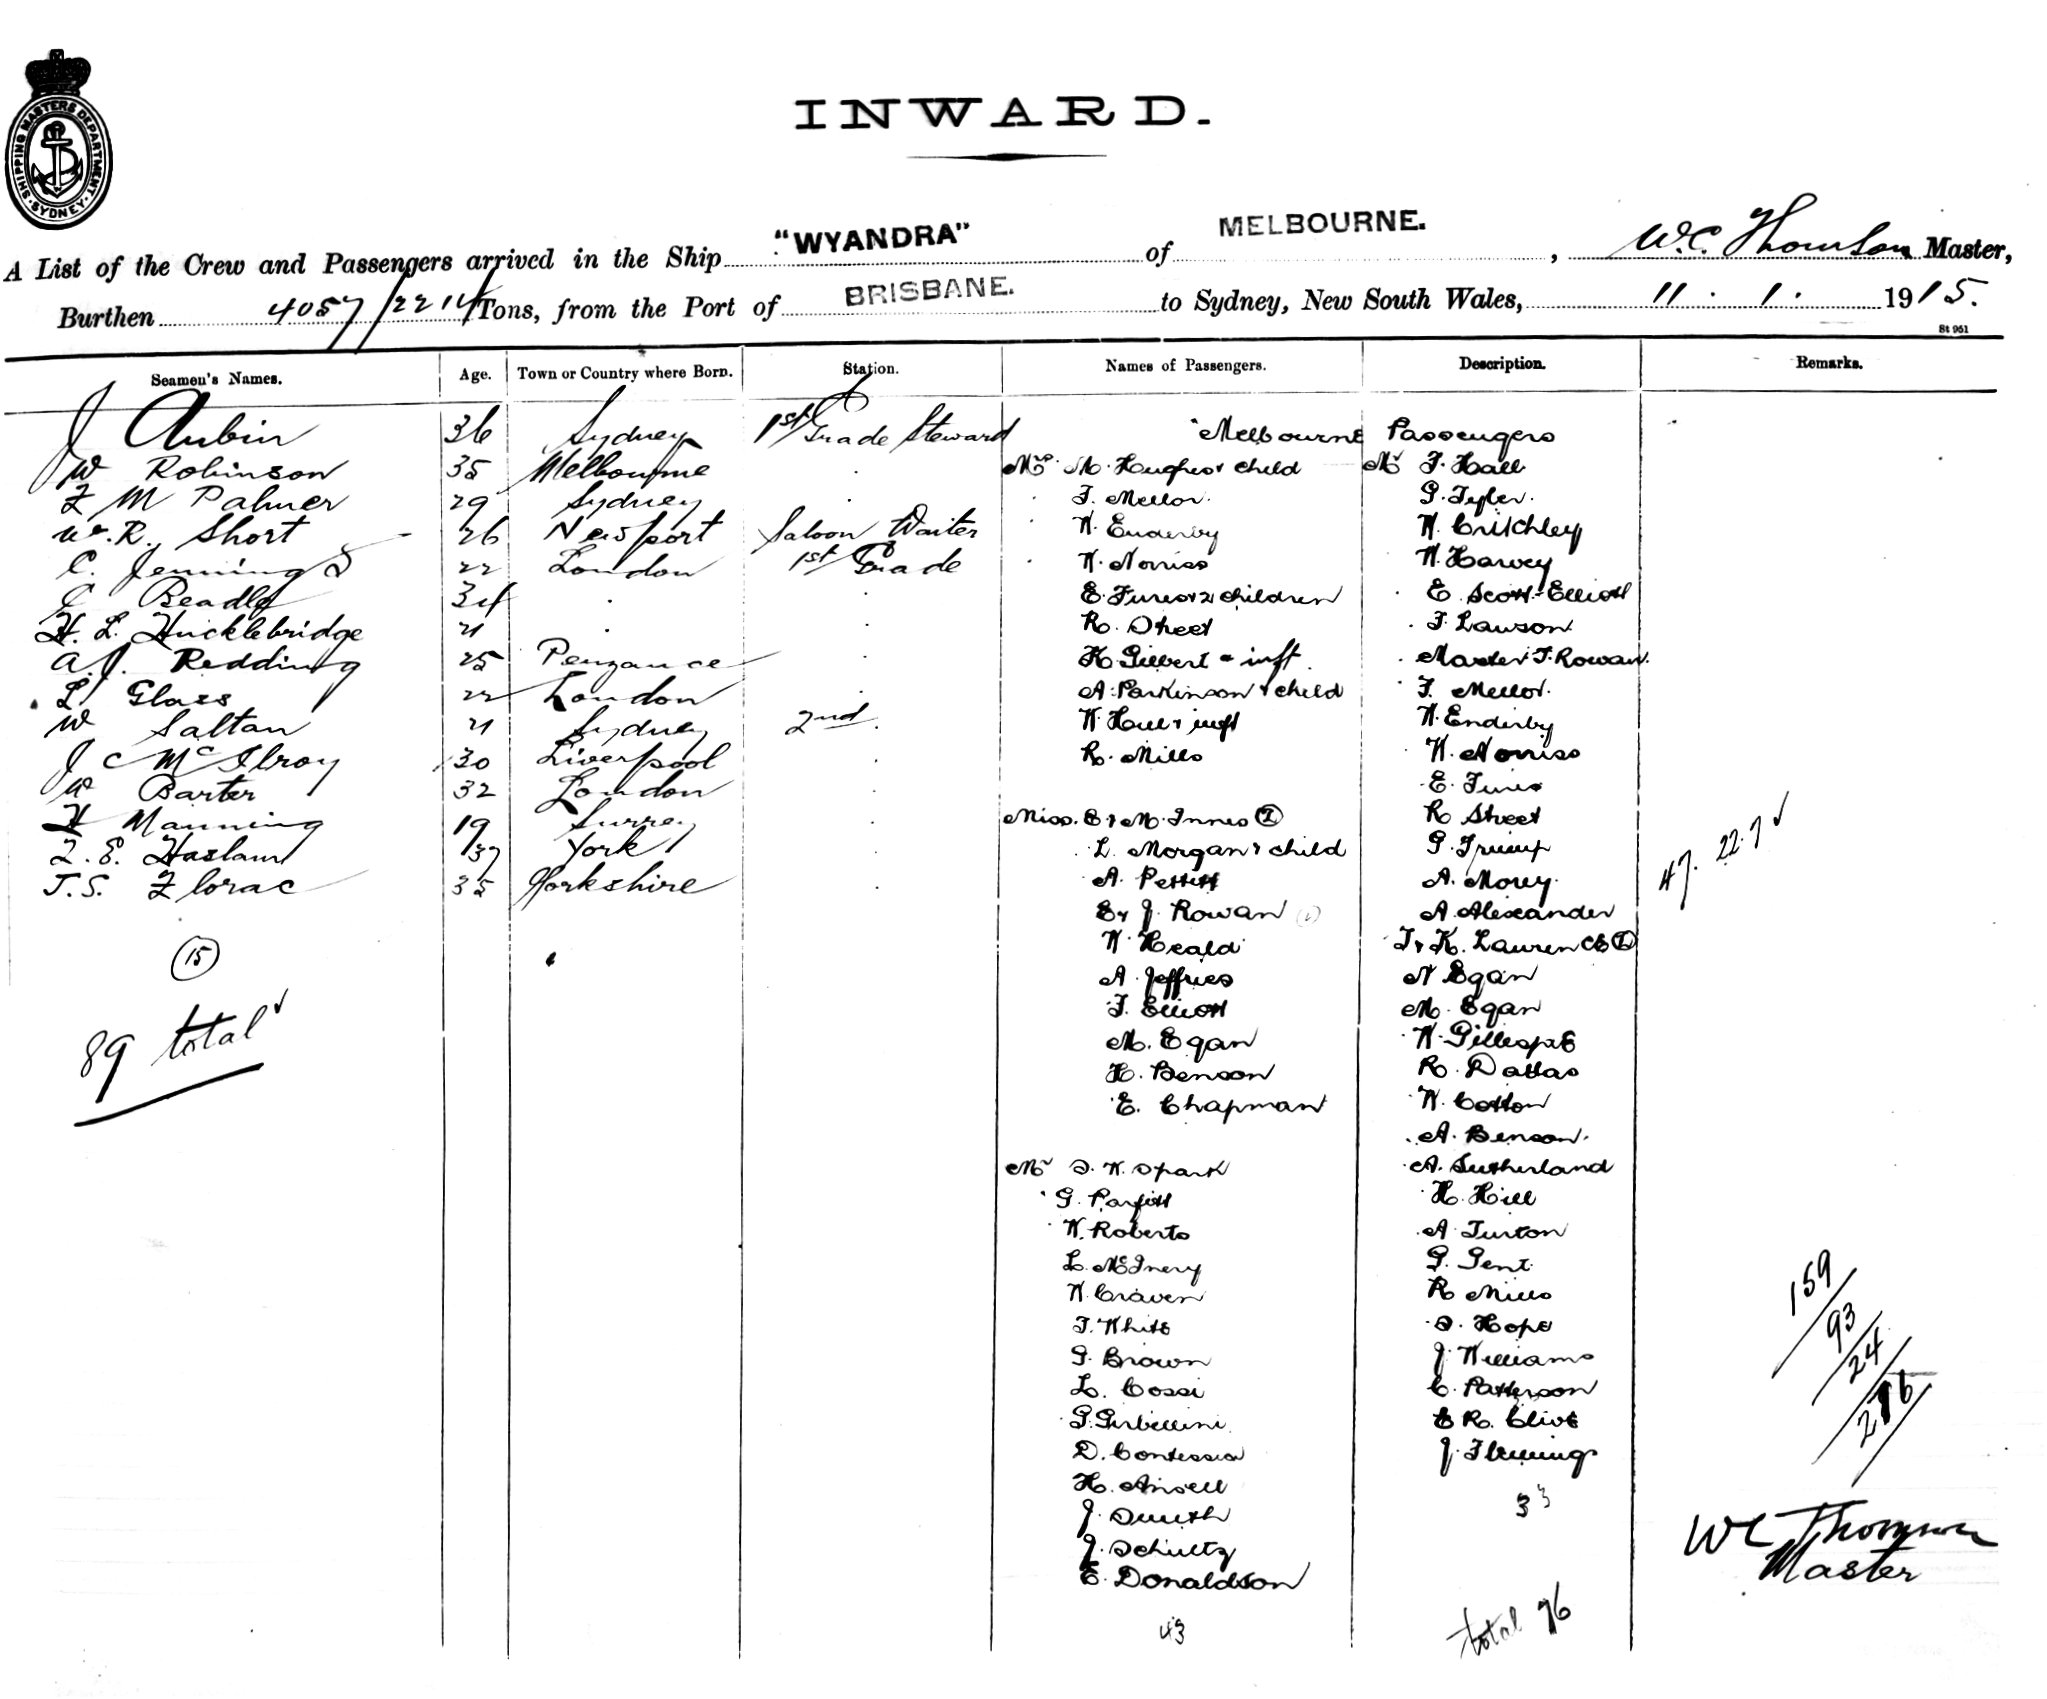 SHIPPING MASTERS DEPARTMENT
SYDNEY
INWARD.
A List of the Crew and Passengers arrived in the Ship "WYANDRA" of MELBOURNE. , W.C. Thomson Master,
Burthen 4057/2214 Tons, from the Port of BRISBANE. to Sydney, New South Wales, 11. 1. 1915.
St 951
Seamen's Names. Age. Town or Country where Born. Station. Names of Passengers. Description. Remarks.
J Aubin 36 Sydney 1st Grade Steward
W Robinson 35 Melbourne
F M Palmer 29 Sydney
W.R. Short 26 Newport Saloon Waiter
C. Jennings 22 London 1st Grade
C Beadle 34
H. L. Hucklebridge 21
A.J. Redding 25 Penzance
L Glass 22 London
W Saltan 21 Sydney 2nd
J C McIlroy 30 Liverpool
W Barter 32 London
H Manning 19 Surrey
F. E. Haslam 37 York
J.S. Florac 35 Yorkshire
15
89 total
Melbourne Passengers
Mrs M. Hughes & child
F. Mellor
W. Enderby
W. Norriss
E. & 2 children
R. Street
H. Gilbert & inft
A. Parkinson & child
W. Hill & inft
R. Mills
Miss. E & M. Innes 2
L. Morgan & child
A. Pettitt
E & J. Rowan (2)
W. Heald
A. Jeffries
F. Elliott
M. Egan
H. Benson
E. Chapman
Mr S. W. Spark
G. Parfitt
W. Roberts
L. McInery
W. Craven
T. White
G. Brown
L. Cossi
G. Girbellini
D. Contessia
H. Ansell
J. Smith
J. Schultz
E. Donaldson
43
Mr F. Hall
G. Tyler.
W. Critchley
W. Harvey
E. Scott-Elliott
F. Lawson
Master F. Rowan
F. Mellor.
W. Enderby
W. Norriss
E.
R Street
G. Trump
A. Morey
A. Alexander
T & K. Laurence 2
N Egan
M. Egan
W. Gillespie
R. Dallas
W. Cotton
A. Benson.
A. Sutherland
H. Hill
A. Turton
G. Gent
R Mills
S. Hope
J. Williams
C. Patterson
E R. Clive
J. Flemings
33
total 76
47. 22. 7
159/93/24/276
WC Thomson
Master